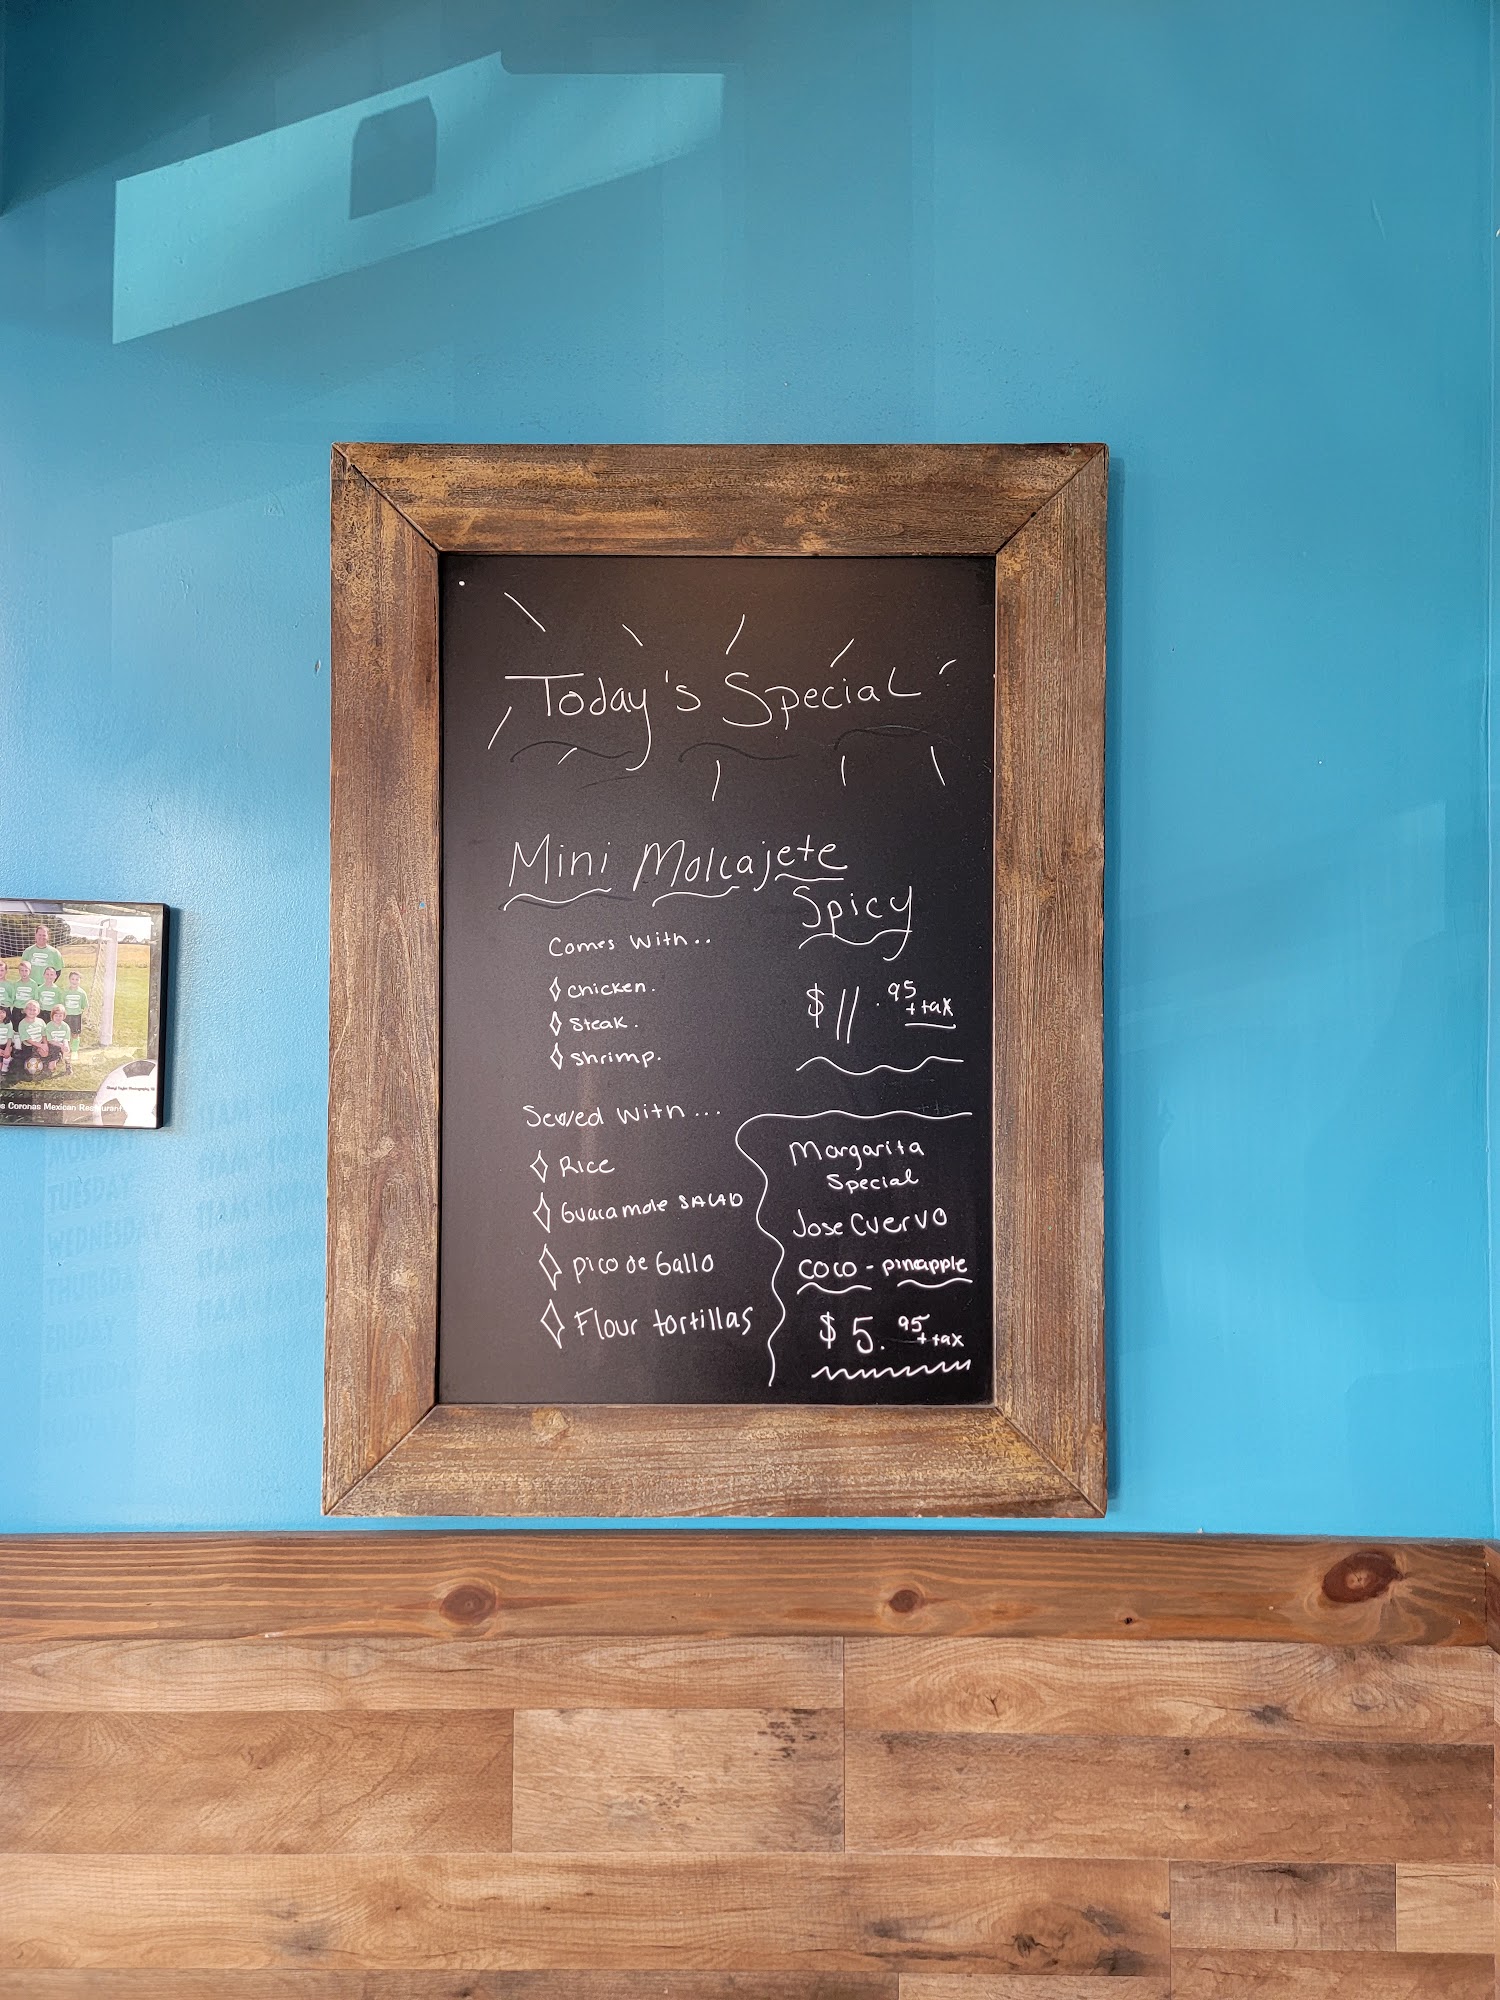 Today's Special
Mini Molcajete
Spicy
Comes With..
chicken.
Steak.
Shrimp.
$11.95
+ tax
Served With...
Rice
Guacamole SALAD
pico de Gallo
Flour tortillas
Margarita
Special
Jose Cuervo
coco - pineapple
$5.95
+ tax
Coronas Mexican Restaurant
TUESDAY
WEDNESDAY
THURSDAY
FRIDAY